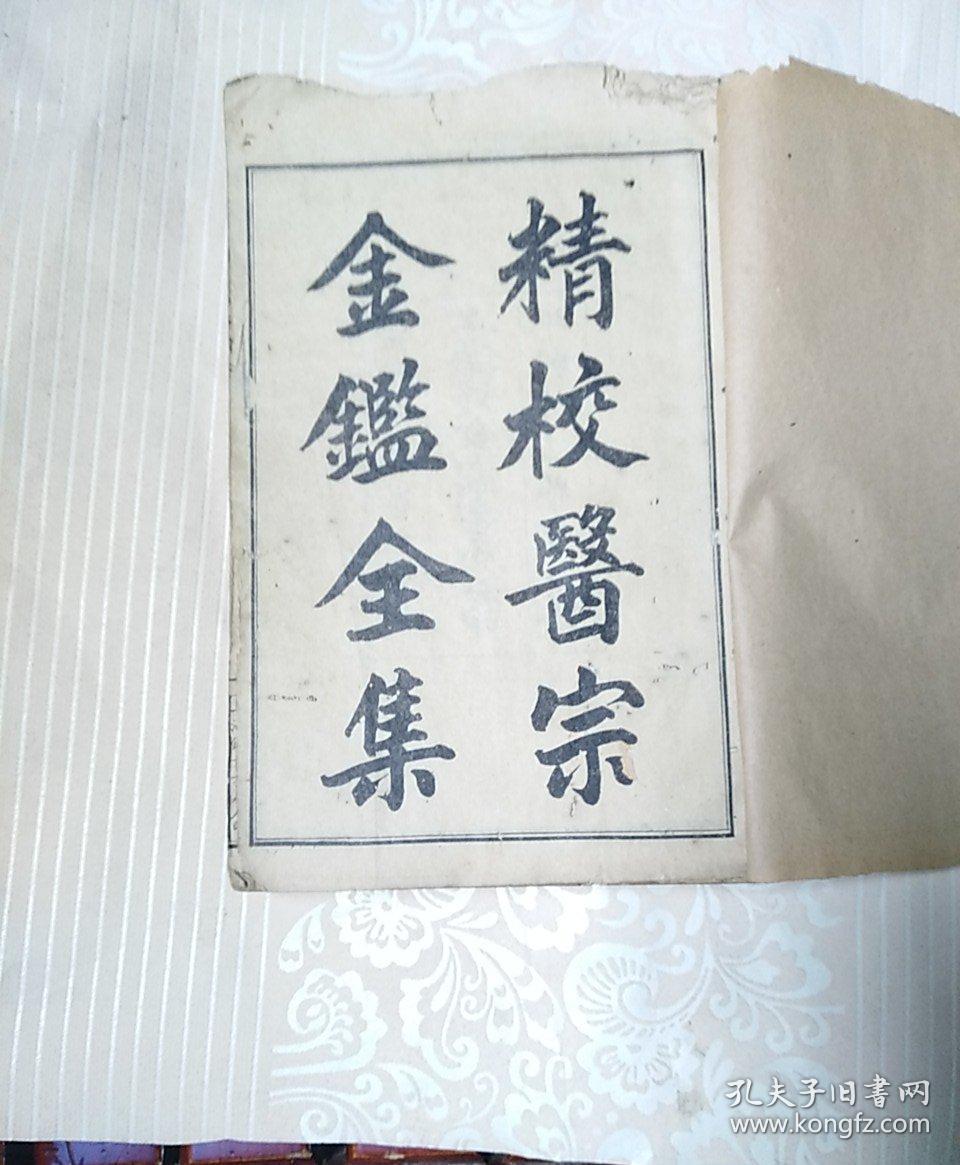 精校醫宗
金鑑全集
孔夫子旧书网
www.kongfz.com